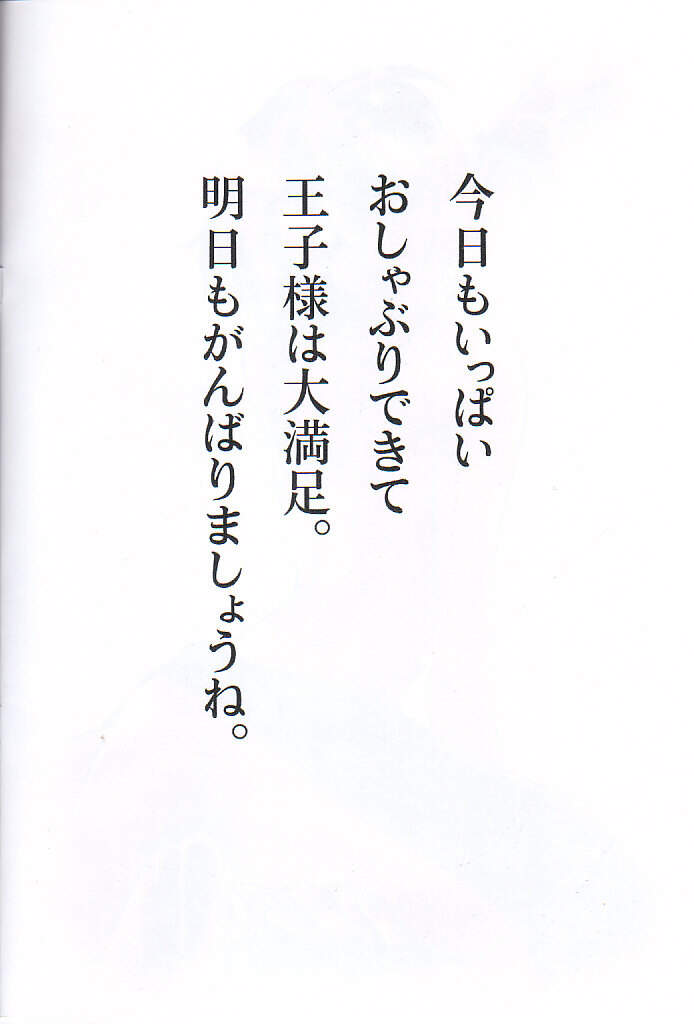 今日もいっぱい
おしゃぶりできて
王子様は大満足。
明日もがんばりましょうね。